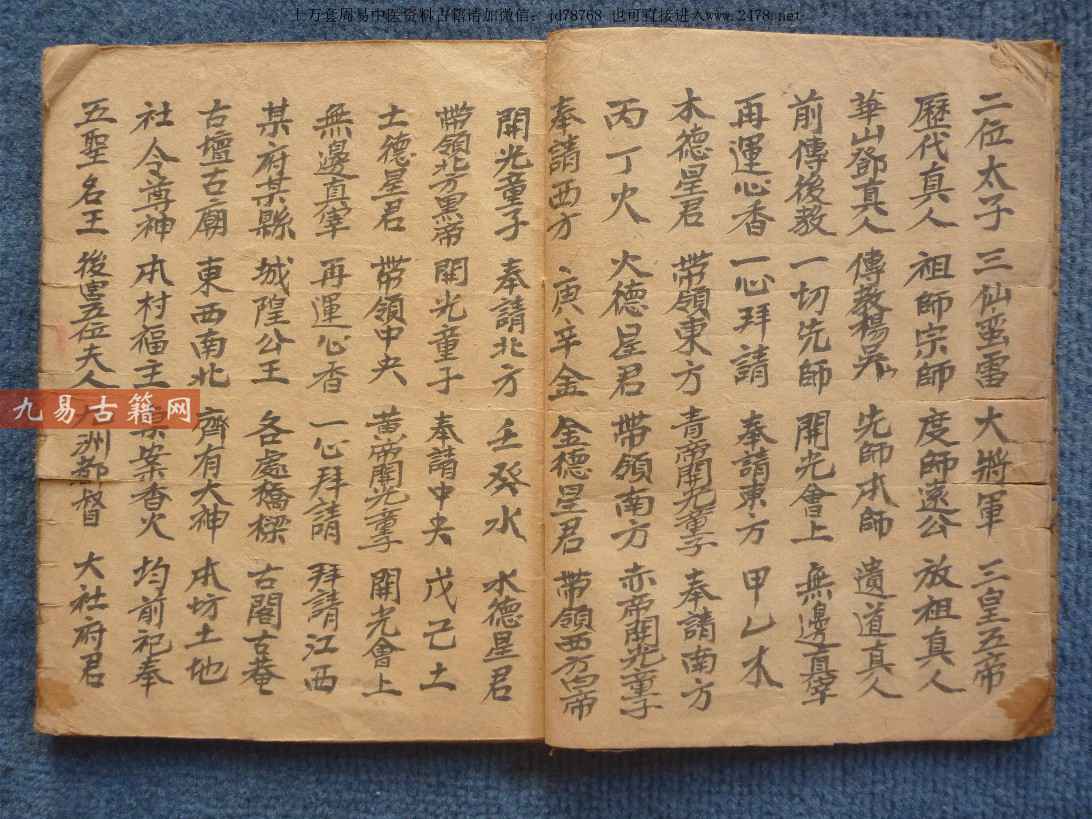 十万套周易中医资料古籍请加微信:jd78768 也可直接进入www.2478.net
二位太子 三仙蛮雷 大將軍 三皇五帝
歷代真人 祖師宗師 度師遠公 放祖真人
華山鄧真人 傳教楊吳 先師本師 遺道真人
前傳後教 一切先師 開光會上 無邊真宰
再運心香 一心拜請 奉請東方 甲乙木
木德星君 带領東方 青帝開光童子 奉請南方
丙丁火 火德星君 带領南方 赤帝開光童子
奉請西方 庚辛金 金德星君 带領西方白帝
開光童子 奉請北方 壬癸水 水德星君
带領北方黑帝 開光童子 奉請中央 戊己土
土德星君 带領中央 黃帝開光童子 開光會上
無邊真宰 再運心香 一心拜請 拜請江西
某府某縣 城隍公王 各處橋樑 古閣古菴
古壇古廟 東西南北 齊有大神 本坊土地
社令尊神 本村福主 案香火 均前祀奉
五聖名王 後宫五位夫人 洲都督 大社府君
九易古籍网